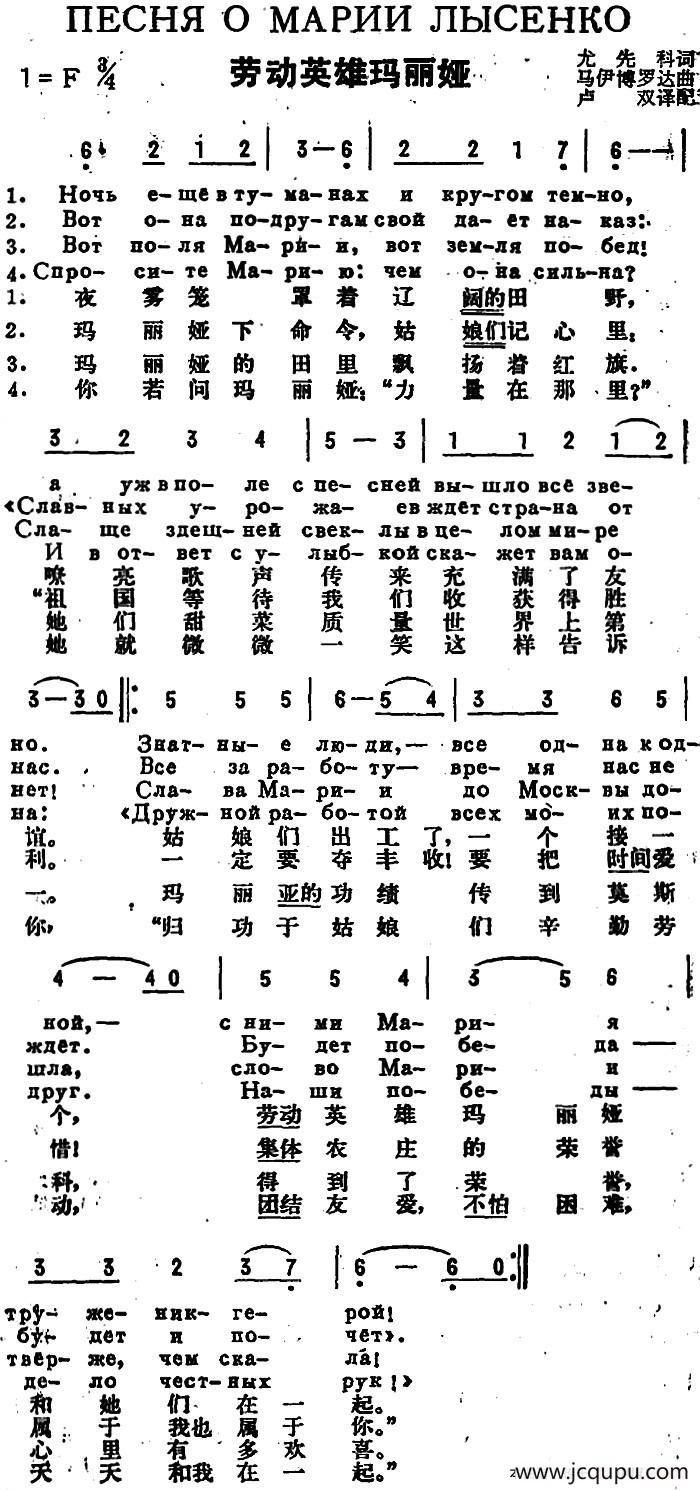 ПЕСНЯ О МАРИИ ЛЫСЕНКО
劳动英雄玛丽娅
尤先科词
1=F 3/4
马伊博罗达曲
卢双译配
6· 2 1 2 | 3—6 | 2 2 1 7 | 6—— |
1. Ночь е-щё в ту-ма-нах и кру-гом тем-но,
2. Вот о-на по-дру-гам свой да-ёт на-каз:
3. Вот по-ля Ма-ри-и, вот зем-ля по-бед!
4. Спро-си-те Ма-ри-ю: чем о-на силь-на?
1. 夜雾笼罩着辽阔的田野,
2. 玛丽娅下命令,姑娘们记心里:
3. 玛丽娅的田里飘扬着红旗.
4. 你若问玛丽娅:“力量在那里?”
3 2 3 4 | 5—3 | 1 1 2 1 2 |
а уж в по-ле с пе-сней вы-шло всё зве-
«Слав-ных у-ро-жа-ев ждёт стра-на от
Сла-ще здеш-ней свек-лы в це-лом ми-ре
И в от-вет с у-лыб-кой ска-жет вам о-
嘹亮歌声传来充满了友
“祖国等待我们收获得胜
她们甜菜质量世界上第
她就微微一笑这样告诉
3—3 0 ‖: 5 5 5 | 6—5 4 | 3 3 6 5 |
но. Знат-ны-е лю-ди,— все од-на к од-
нас. Все за ра-бо-ту— вре-мя нас не
нет! Сла-ва Ма-ри-и до Москвы до-
на: «Друж-ной ра-бо-той всех мо-их по-
谊。姑娘们出工了,一个接一
利。一定要夺丰收!要把时间爱
一。玛丽亚的功绩传到莫斯
你,“归功于姑娘们辛勤劳
4 — 4 0 | 5 5 4 | 3 5 6 |
ной,— с ни-ми Ма-ри-я
ждёт. Бу-дет по-бе-да—
шла, сло-во Ма-ри-и
друг. На-ши по-бе-ды—
个,劳动英雄玛丽娅
惜!集体农庄的荣誉
科,得到了荣誉,
动,团结友爱,不怕困难,
3 3 2 3 7 | 6 — 6 0 :‖
тру-же-ник-ге-рой!
бу-дет и по-чёт».
твёр-же, чем ска-ла!
де-ло чест-ных рук!»
和她们在一起。
属于我也属于你。”
心里有多欢喜。
天天和我在一起。”
www.jcqupu.com